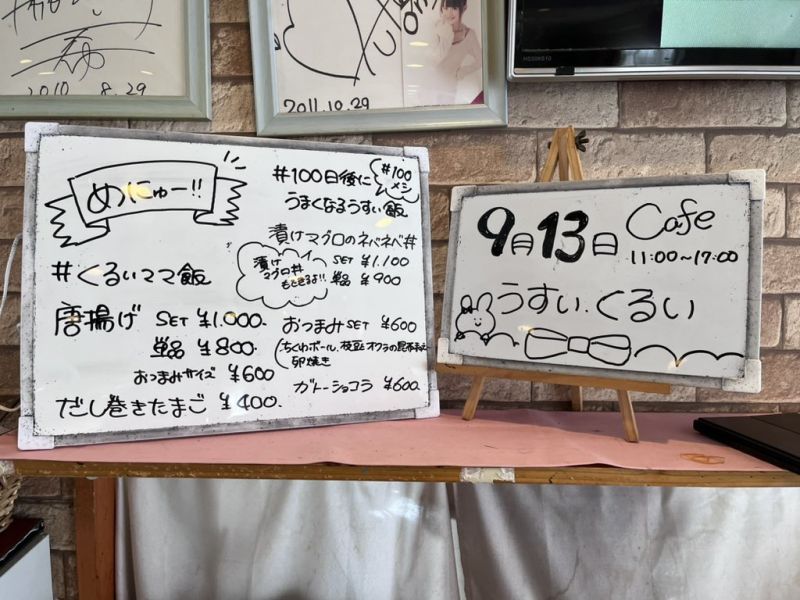 2010. 8.29
2011.10.29
めにゅー!!
#くるいママ飯
唐揚げ SET ¥1,000-
単品 ¥800-
おつまみサイズ ¥600
だし巻きたまご ¥400-
#100日後に
うまくなるうすい飯
#100
メシ
漬けマグロのネバネバ丼
SET ¥1,100
単品 ¥900
漬け
マグロ丼
もできるよ!!
おつまみ SET ¥600
(ちくわボール、枝豆とオクラの昆布和え
卵焼き
ガトーショコラ ¥600-
9月13日 Cafe
11:00~17:00
うすい.くるい